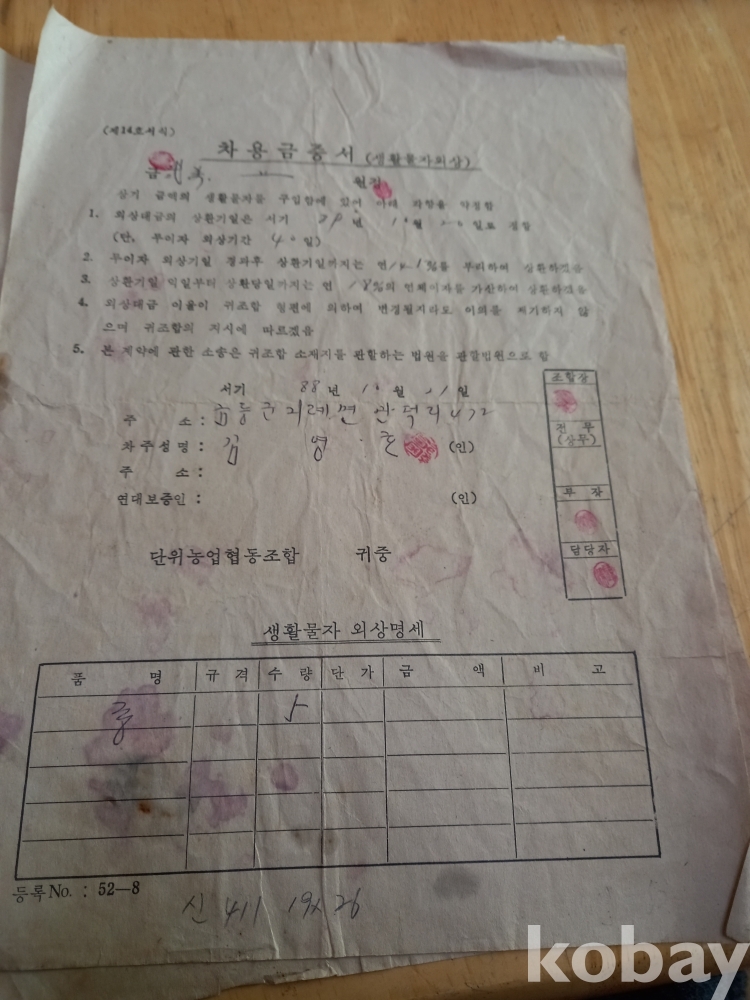 (제14호서식)
차용금증서 (생활물자외상)
금 원정
상기 금액의 생활물자를 구입함에 있어 아래 사항을 약정함
1. 외상대금의 상환기일은 서기 년 월 일로 정함
(단, 무이자 외상기간 40일)
2. 무이자 외상기일 경과후 상환기일까지는 연 %를 부리하여 상환하겠음
3. 상환기일 익일부터 상환당일까지는 연 18%의 연체이자를 가산하여 상환하겠음
4. 외상대금 이율이 귀조합 형편에 의하여 변경될지라도 이의를 제기하지 않
으며 귀조합의 지시에 따르겠음
5. 본 계약에 관한 소송은 귀조합 소재지를 관할하는 법원을 관할법원으로 함
서기 88년 월 일
주 소: 지례면 관덕리
차주성명: 김 영 (인)
주 소:
연대보증인: (인)
조합장
전무
(상무)
부장
담당자
단위농업협동조합 귀중
생활물자 외상명세
품명 규격 수량 단가 금액 비고
5
등록No. : 52—8
신 411
kobay